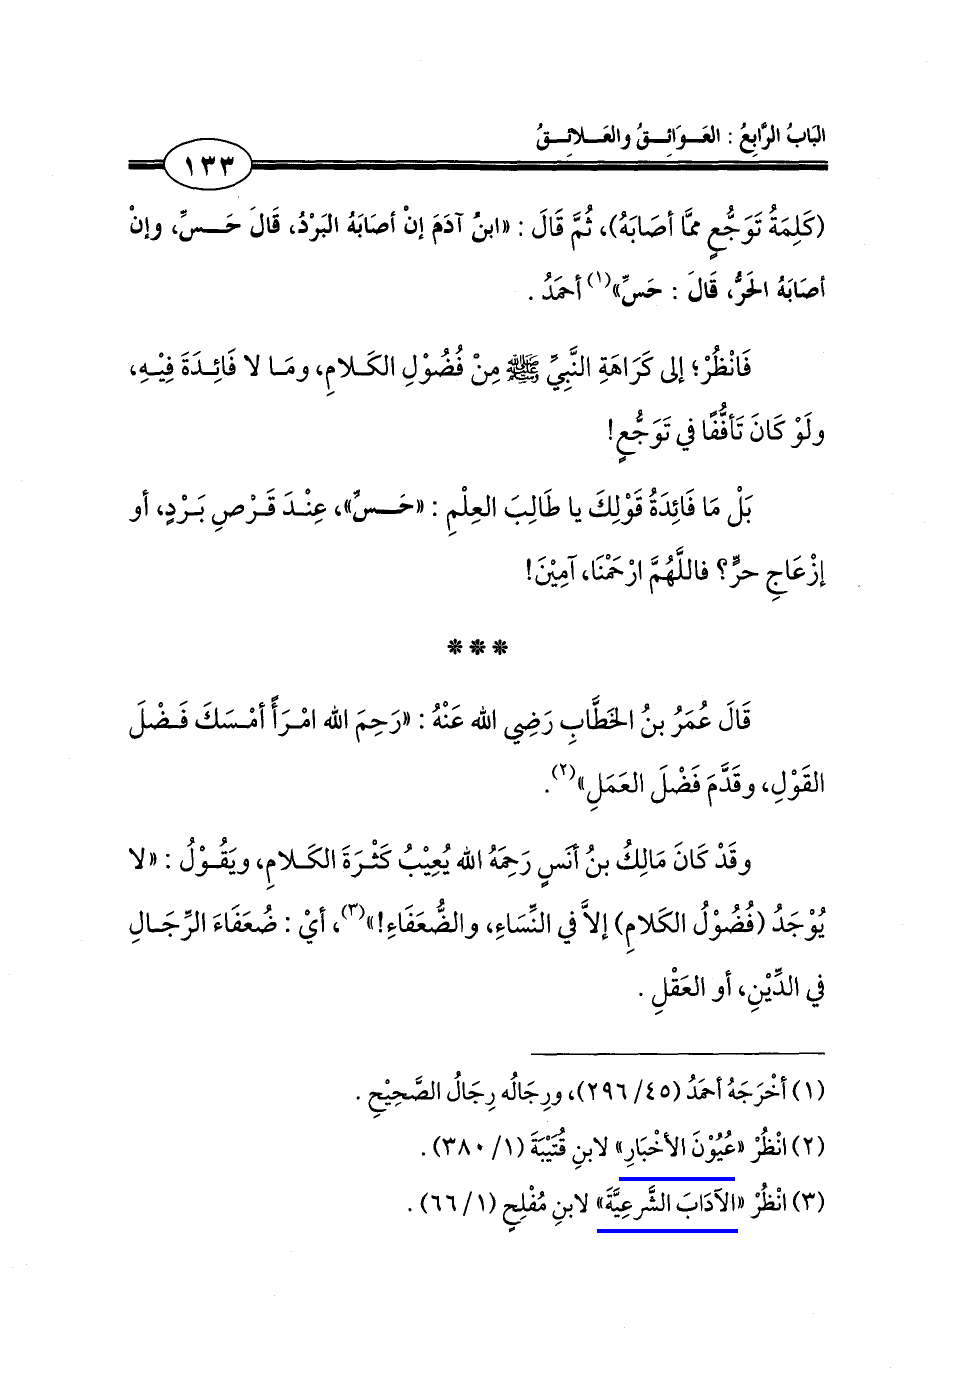 البَابُ الرَّابِعُ : العَـوَائِـقُ والعَـلائِـقُ
١٣٣
(كَلِمَةُ تَوَجُّعٍ ممَّا أصَابَهُ)، ثُمَّ قَالَ : «ابنُ آدَمَ إنْ أصَابَهُ البَرْدُ، قَالَ حَـسِّ، وإنْ
أصَابَهُ الحَرُّ، قَالَ : حَسِّ»(١) أحمَدُ .
فَانْظُرْ؛ إلى كَرَاهَةِ النَّبِيِّ ﷺ مِنْ فُضُوْلِ الكَـلامِ، ومَـا لا فَائِـدَةَ فِيْهِ،
ولَوْ كَانَ تَأفُّفًا في تَوَجُّعٍ!
بَلْ مَا فَائِدَةُ قَوْلِكَ يا طَالِبَ العِلْمِ : «حَـسِّ»، عِنْـدَ قَـرْصِ بَـرْدٍ، أو
إزْعَاجِ حرٍّ؟ فاللَّهُمَّ ارْحَمْنَا، آمِيْنَ!
***
قَالَ عُمَرُ بنُ الخَطَّابِ رَضِي الله عَنْهُ : «رَحِمَ الله امْـرَأً أمْـسَكَ فَـضْلَ
القَوْلِ، وقَدَّمَ فَضْلَ العَمَلِ»(٢).
وقَدْ كَانَ مَالِكُ بنُ أنَسٍ رَحِمَهُ الله يُعِيْبُ كَثْـرَةَ الكَـلامِ، ويَقُـوْلُ : «لا
يُوْجَدُ (فُضُوْلُ الكَلامِ) إلاَّ في النِّسَاءِ، والضُّعَفَاءِ!»(٣)، أيْ : ضُعَفَاءَ الرِّجَـالِ
في الدِّيْنِ، أو العَقْلِ .
(١) أخْرَجَهُ أحمَدُ (٤٥/ ٢٩٦)، ورِجَالُه رِجَالُ الصَّحِيْحِ .
(٢) انْظُرْ «عُيُوْنَ الأخْبَارِ» لابنِ قُتَيْبَةَ (١/ ٣٨٠) .
(٣) انْظُرْ «الآدَابَ الشَّرعِيَّةَ» لابنِ مُفْلِحٍ (١/ ٦٦) .